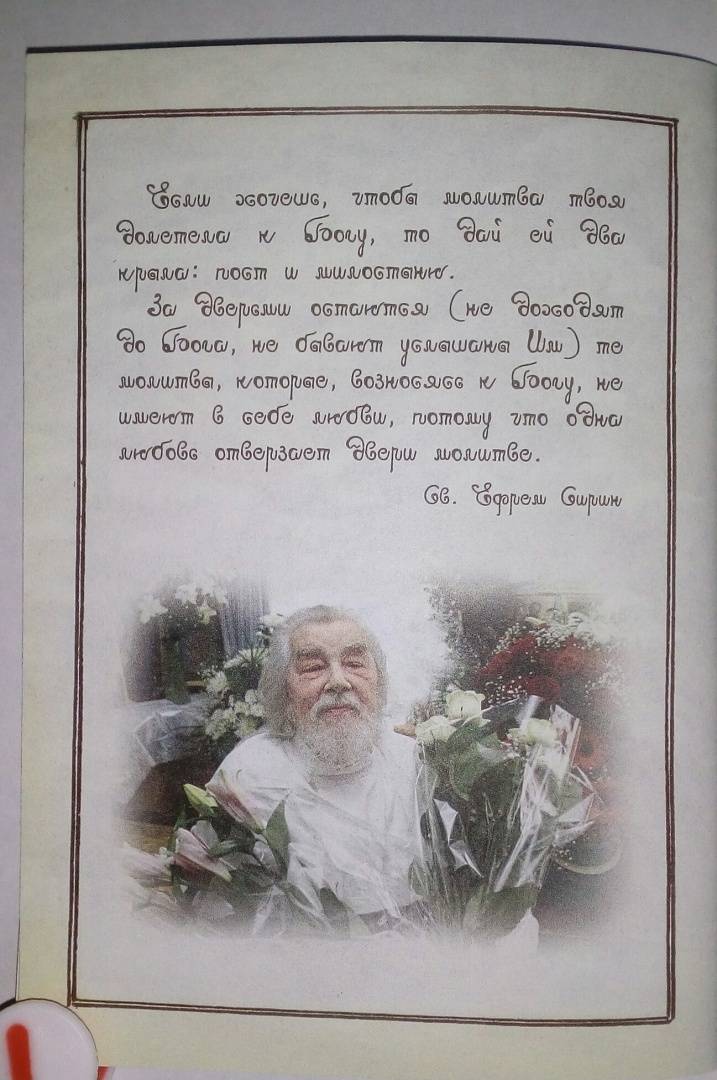 Если хочешь, чтобы молитва твоя
долетела к Богу, то дай ей два
крыла: пост и милостыню.
За дверьми остаются (не доходят
до Бога, не бывают услышаны Им) те
молитвы, которые, возносясь к Богу, не
имеют в себе любви, потому что одна
любовь отверзает двери молитве.
Св. Ефрем Сирин